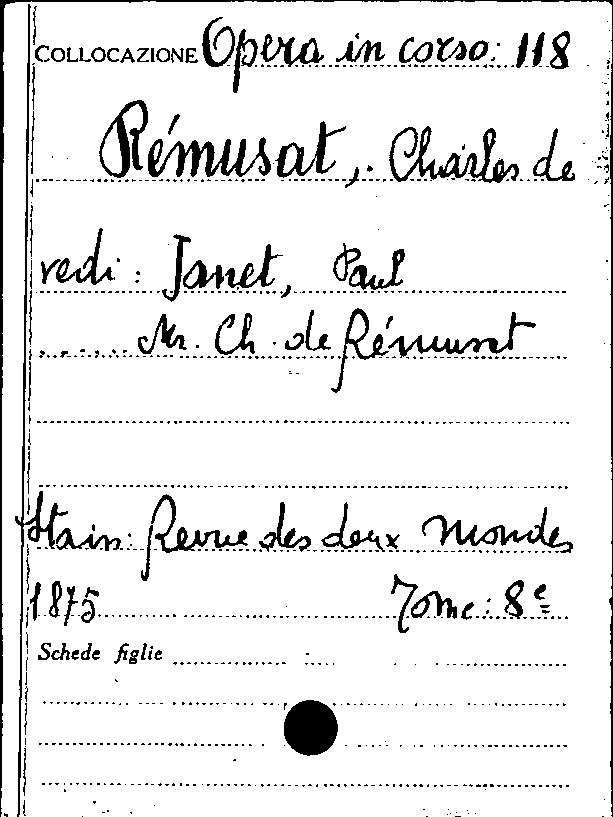 COLLOCAZIONE Opera in corso: 118
Rémusat, Charles de
vedi: Janet, Paul
...... Mr. Ch. de Rémusat
Sta in: Revue des deux Mondes
1875 Tome: 8e
Schede figlie